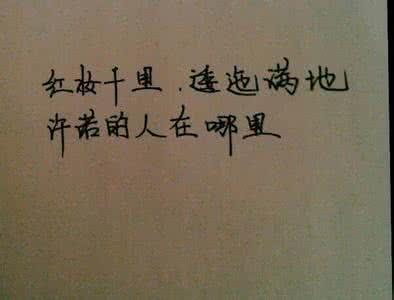 红妆千里.逶迤满地
许诺的人在哪里